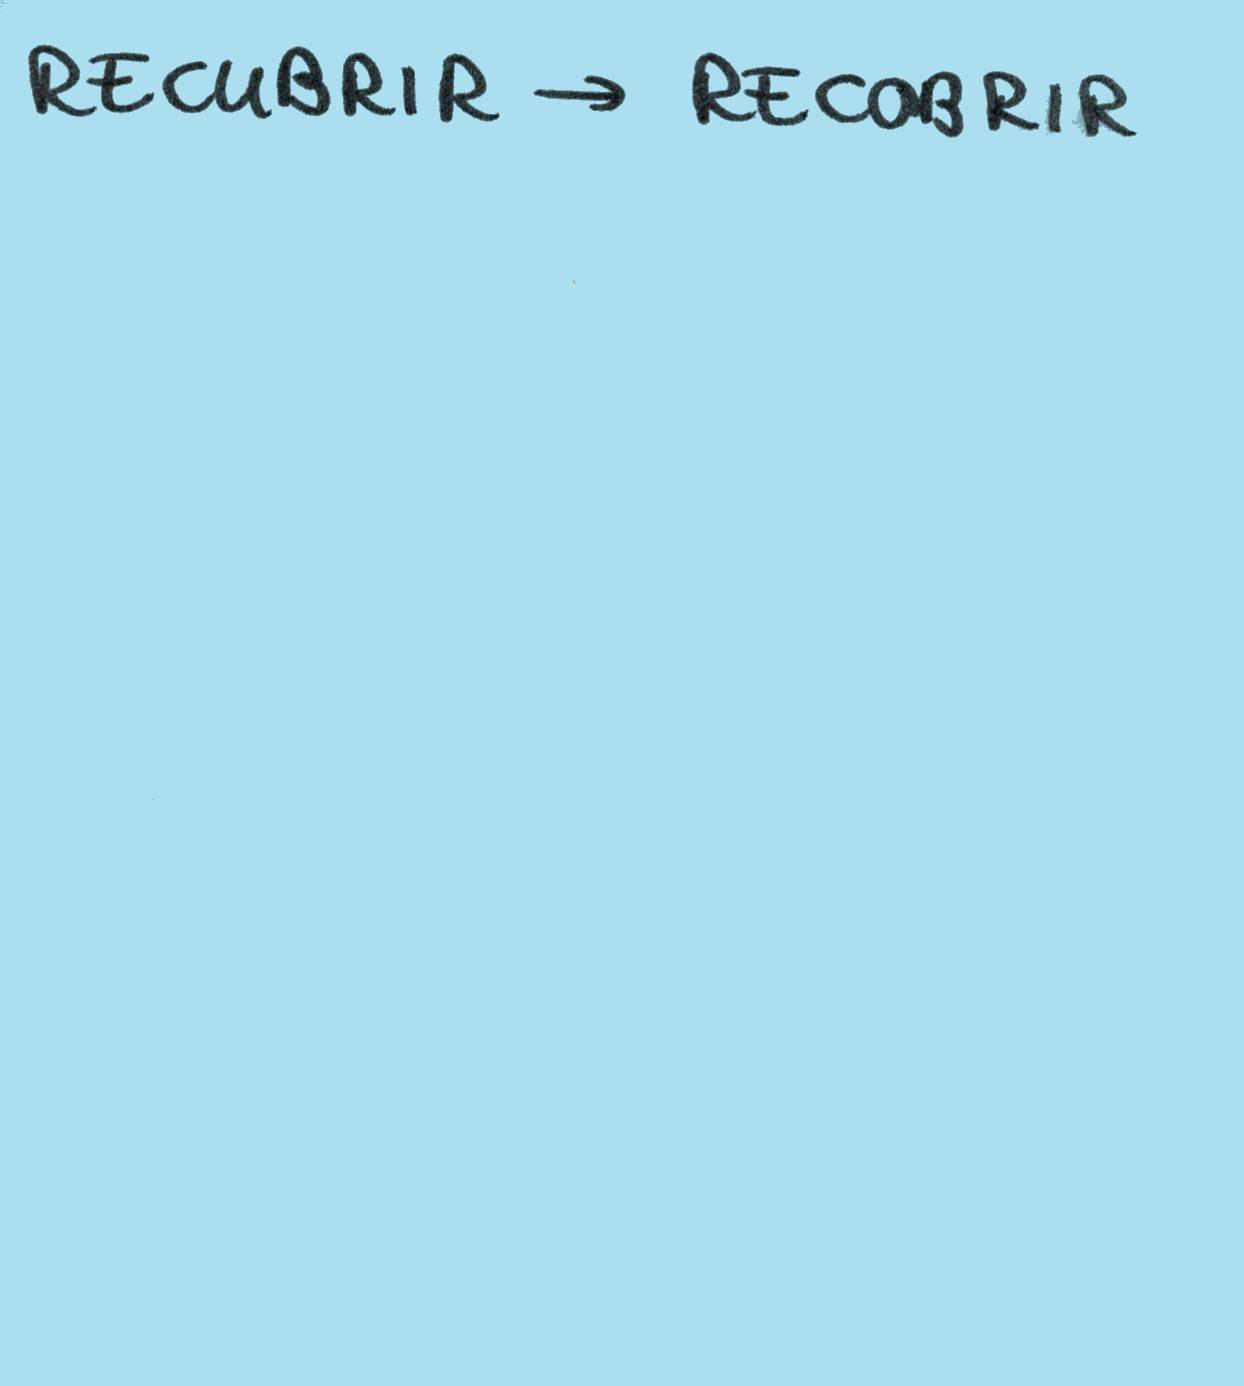 RECUBRIR → RECOBRIR